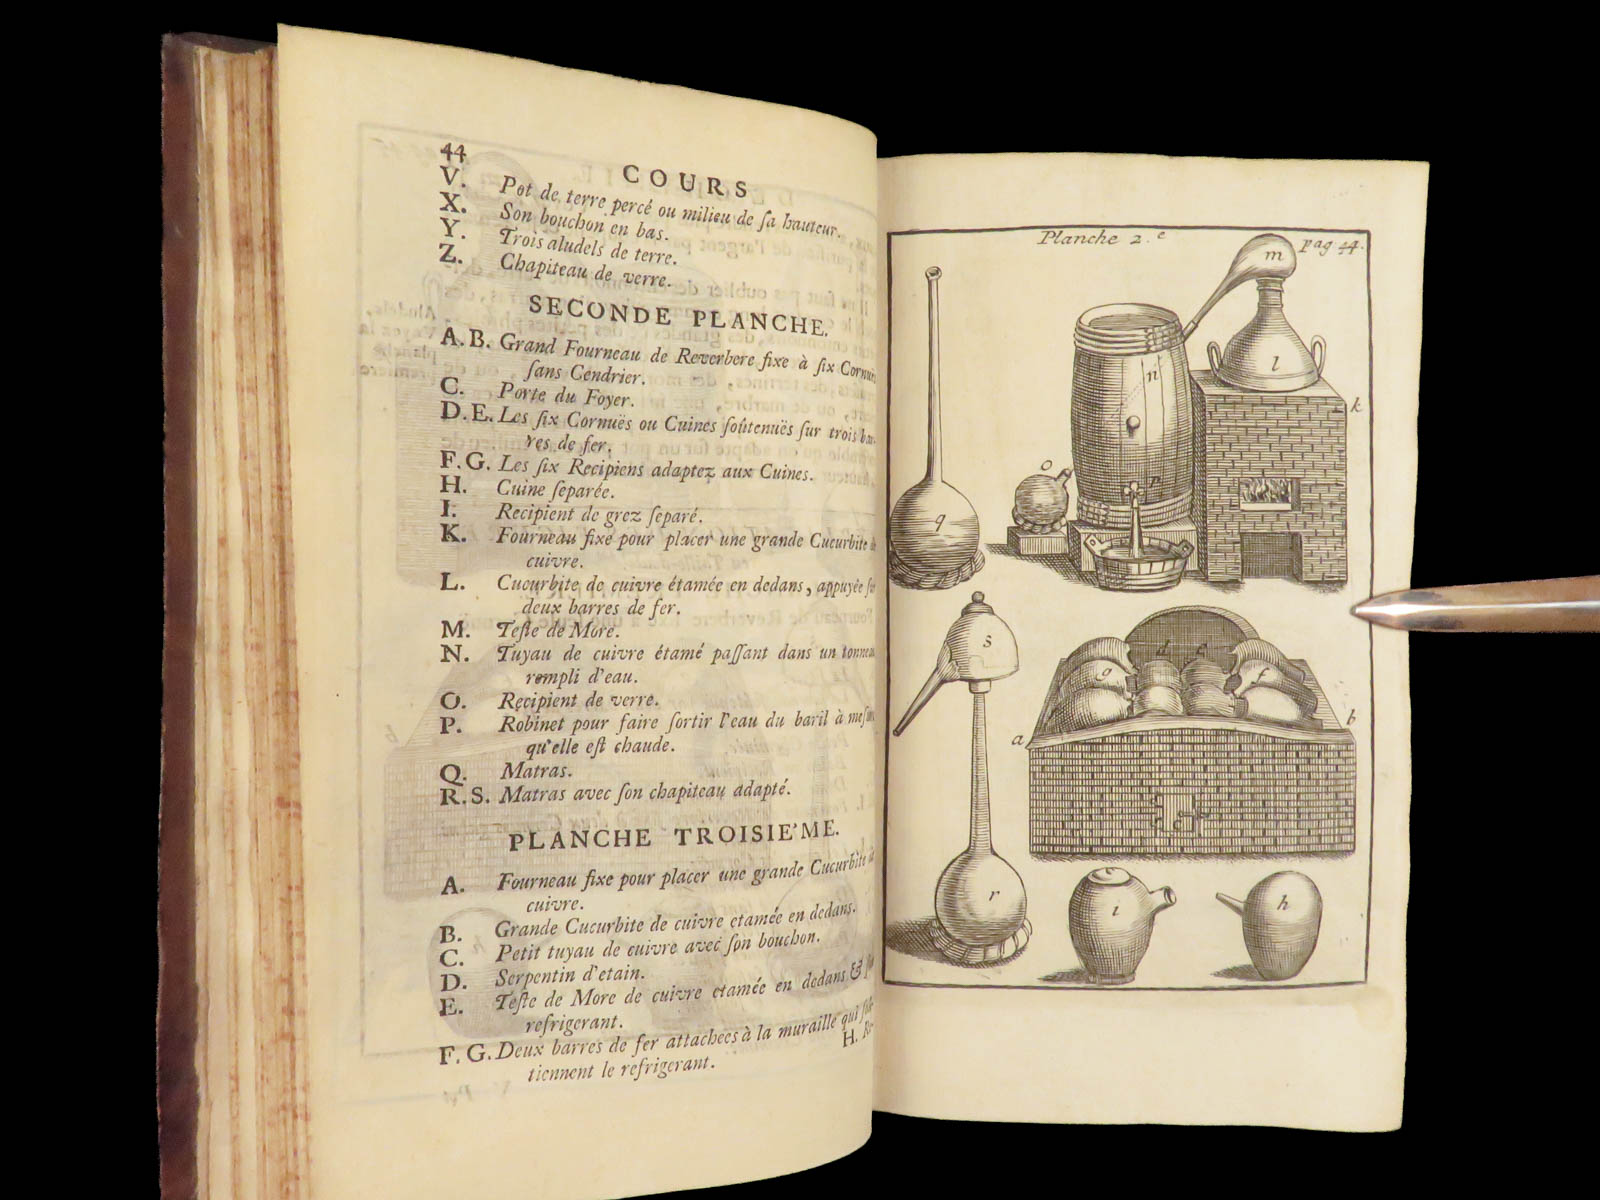 44
COURS
V. Pot de terre percé ou milieu de ſa hauteur.
X. Son bouchon en bas.
Y. Trois aludels de terre.
Z. Chapiteau de verre.
SECONDE PLANCHE.
A.B. Grand Fourneau de Reverbere fixe à ſix Cornuës
ſans Cendrier.
C. Porte du Foyer.
D.E. Les ſix Cornuës ou Cuines ſoûtenuës ſur trois bar-
res de fer.
F.G. Les ſix Recipiens adaptez aux Cuines.
H. Cuine ſeparée.
I. Recipient de grez ſeparé.
K. Fourneau fixe pour placer une grande Cucurbite de
cuivre.
L. Cucurbite de cuivre étamée en dedans, appuyée ſur
deux barres de fer.
M. Teſte de More.
N. Tuyau de cuivre étamé paſſant dans un tonneau
rempli d'eau.
O. Recipient de verre.
P. Robinet pour faire ſortir l'eau du baril à meſure
qu'elle eſt chaude.
Q. Matras.
R.S. Matras avec ſon chapiteau adapté.
PLANCHE TROISIE'ME.
A. Fourneau fixe pour placer une grande Cucurbite de
cuivre.
B. Grande Cucurbite de cuivre etamée en dedans.
C. Petit tuyau de cuivre avec ſon bouchon.
D. Serpentin d'etain.
E. Teſte de More de cuivre etamée en dedans & ſon
refrigerant.
F.G. Deux barres de fer attachées à la muraille qui ſoû-
tiennent le refrigerant.
H. Re-
Planche 2.e
pag 44.
m
n
l
k
o
p
q
s
d
e
g
f
b
a
r
i
h